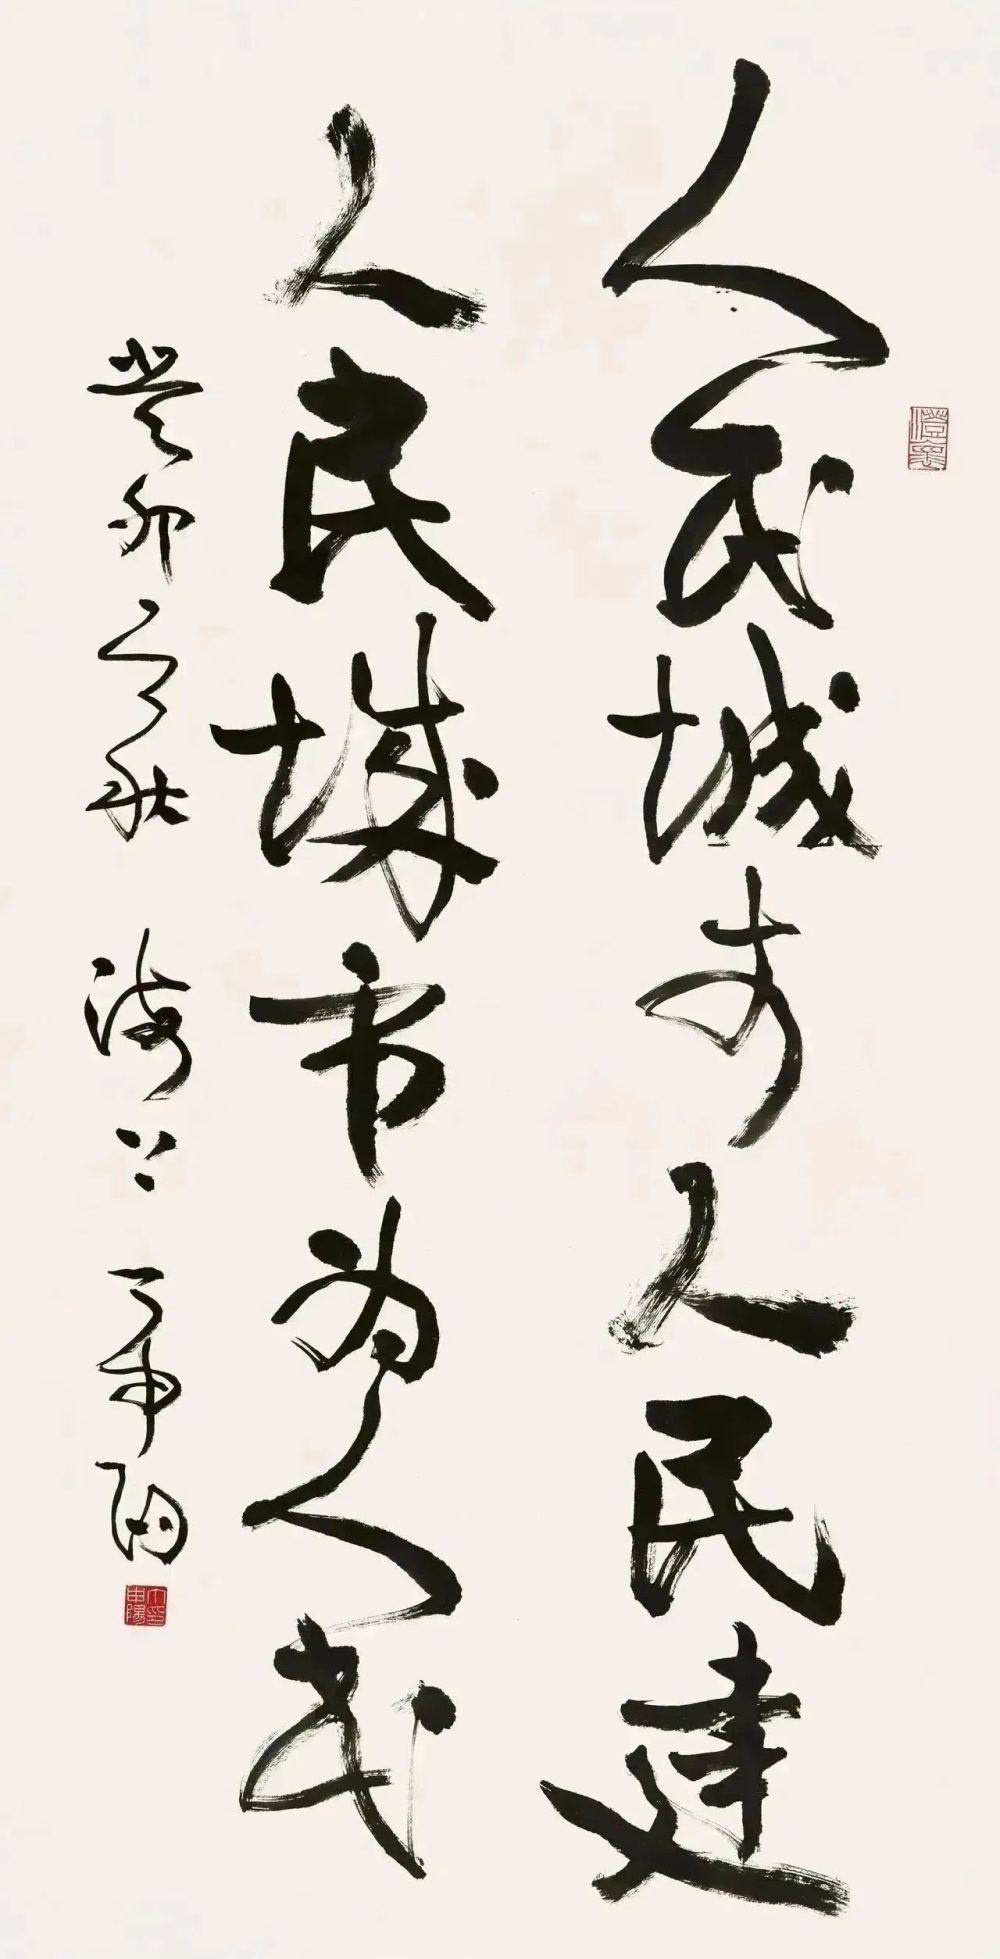 人民城市人民建
人民城市为人民
癸卯之秋 海上 丁申阳